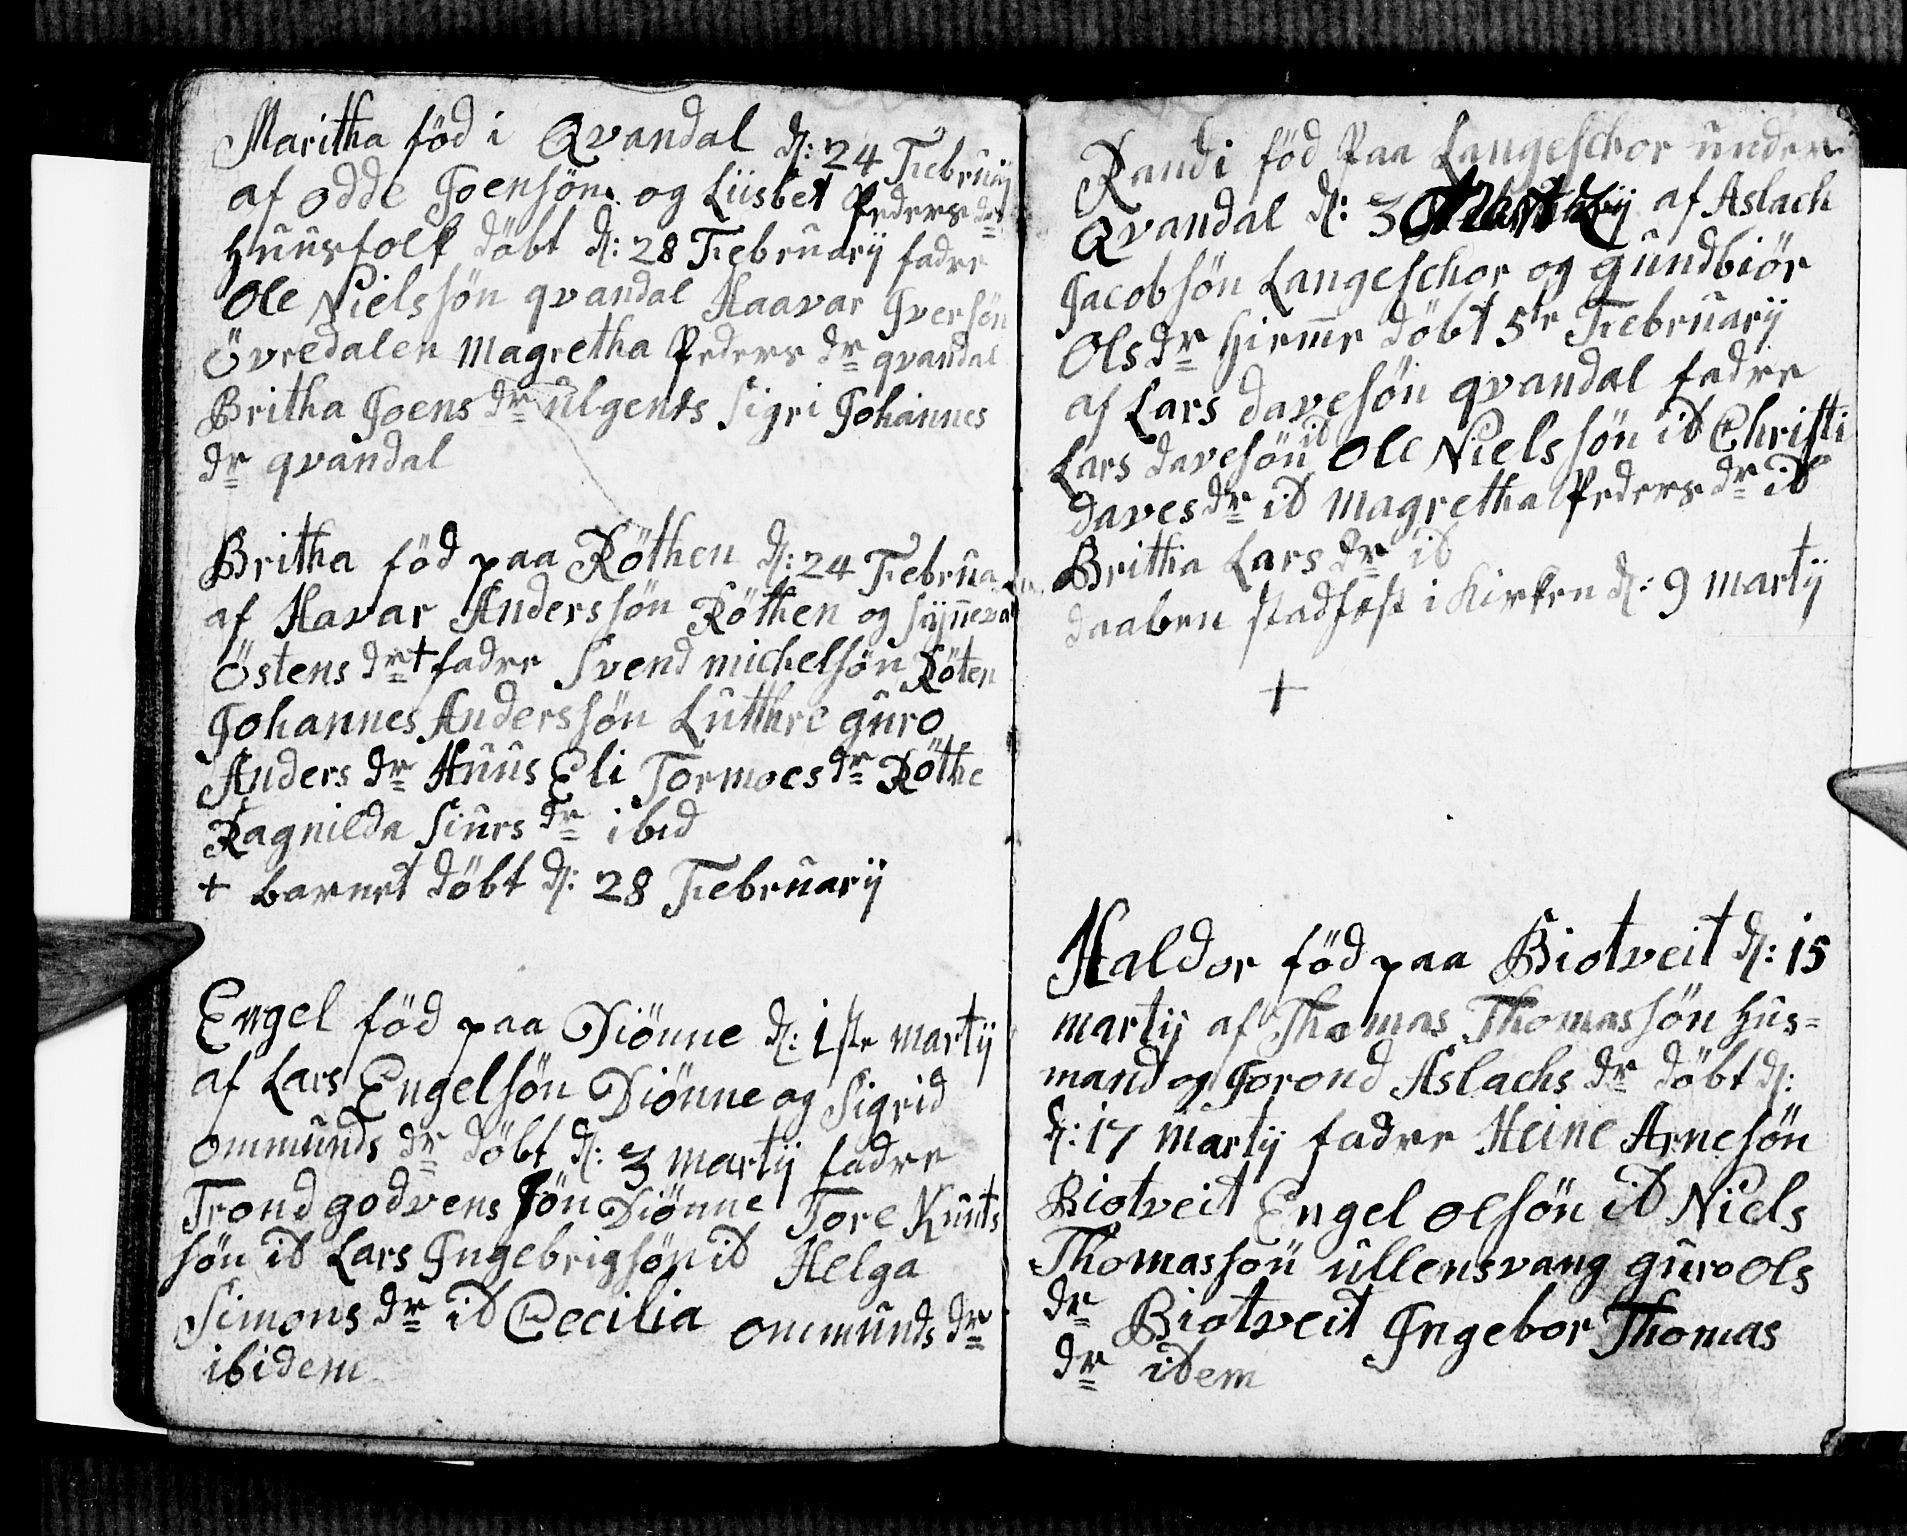 Maritha föd i Qvandal d: 24 Februarij
af odde Joensön og Liisbet Peders dr
Huusfolk döbt d: 28 Februarij fadre
Ole Nielssön qvandal Haavar Iversön
Övredalen Magretha Peders dr qvandal
Britha Joens dr ulgents Sigri Johannes
dr qvandal
Britha föd paa Röthen d: 24 Februa
af Havar Anderssön Röthen og Sÿneva
Östens dr + fadre Svend michelsön Röten
Johannes Anderssön Luthre guro
Anders dr Huus Eli Tormoes dr Röthe
Ragnilda Siurs dr ibid
+ barnet döbt d: 28 Februarij
Engel föd paa Diönne d: 1ste martij
af Lars Engelsön Diönne og Sigrid
ommunds dr döbt d: 3 martij fadre
Trond godvens Sön Diönne Tore Knuts
sön id Lars Ingebrigsön id Helga
Simons dr id Cecilia ommunds dr
ibidem
Randi föd paa Langeschor under
Qvandal d: 3 af Aslach
Jacobsön Langeschor og gundbiör
Ols dr Hiemr döbt 5te Februarij
af Lars davesön qvandal fadre
Lars davesön id Ole Nielssön id Christi
daves dr id Magretha Peders dr id
Britha Lars dr id
daaben stadfest i Kirken d: 9 martij
+
Haldor föd paa Biotveit d: 15
martij af Thomas Thomassön Hus=
mand og Jorond Aslachs dr döbt d:
d: 17 martij fadre Heine Arnesön
Biotveit Engel olsön id Niels
Thomassön ullensvang guro ols
dr Biotveit Ingebor Thomas
dr idem